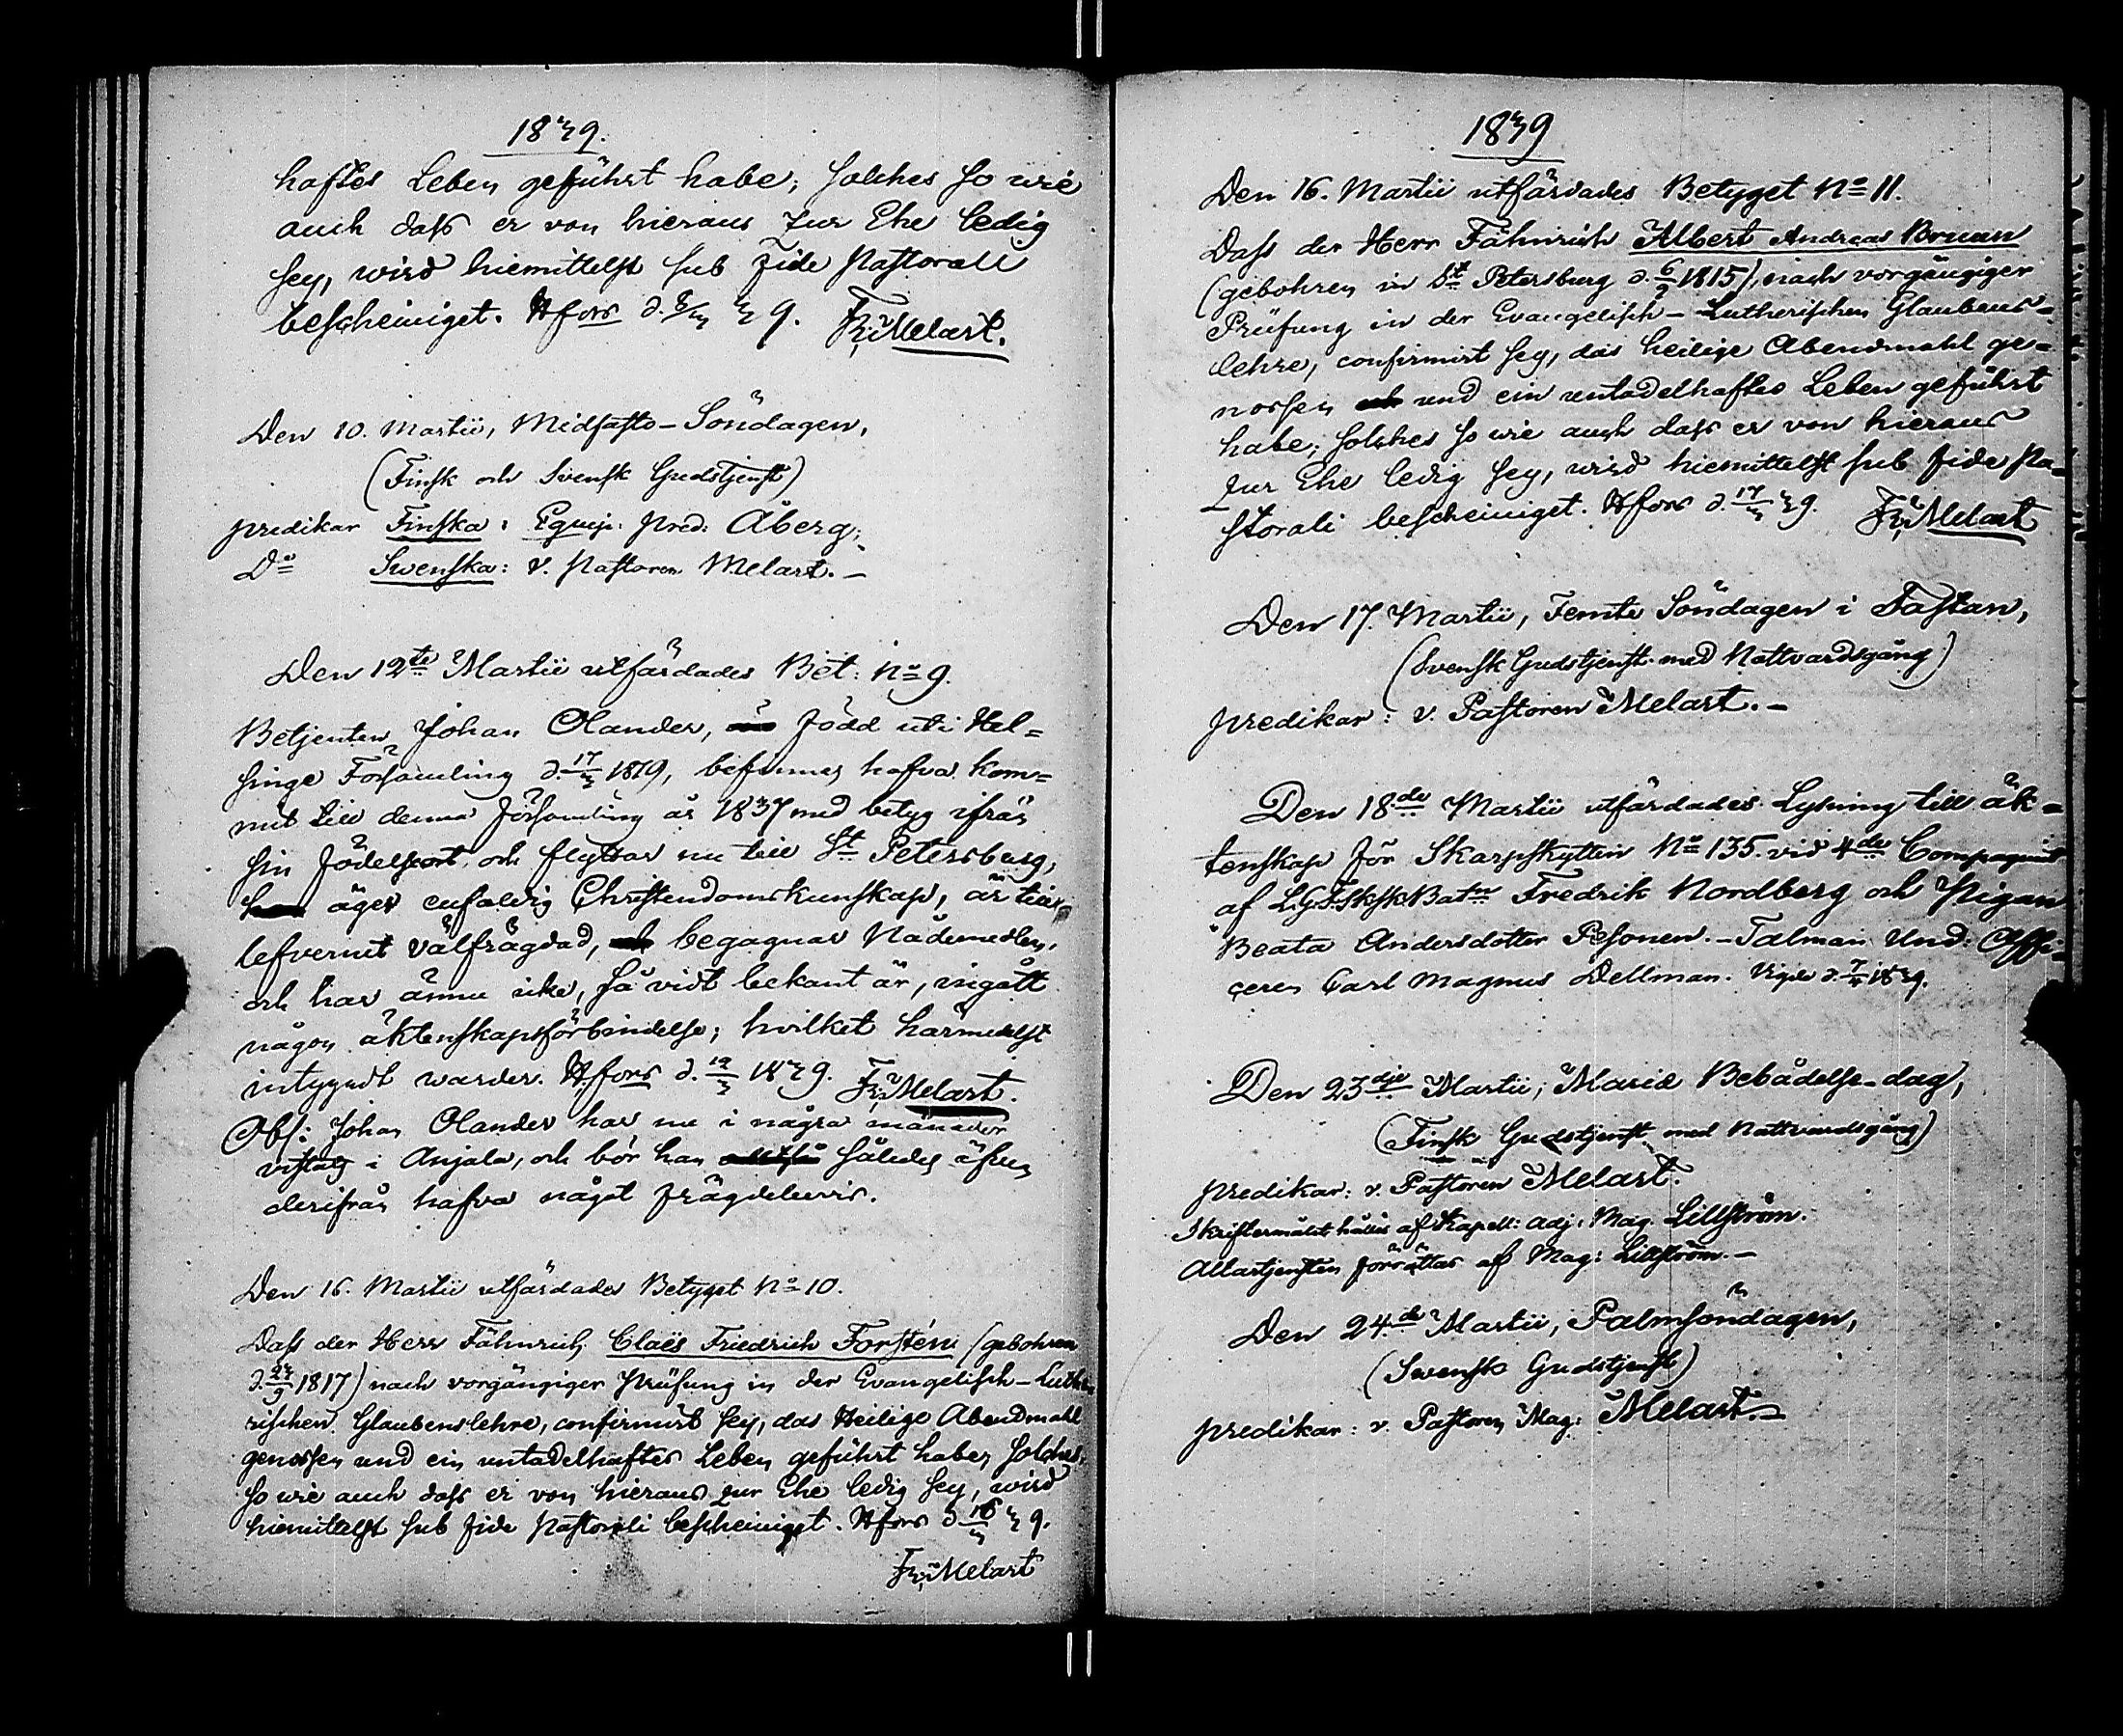 1839.
haftes Leben geführt habe; solches so wie
auch dass er von hieraus zur Ehe ledig
sey, wird hiemittelst sub fide Pastorali
bescheiniget. Hfors d. 8/3 39. Fr: Melart.
Den 10. Martii, Midfasto-Söndagen,
(Finsk och Svensk Gudstjenst)
predikar Finska: Eqvip: Pred: Åberg;
Do Swenska: v. Pastoren Melart.-
Den 12te Martii utfärdades Bet: No 9.
Betjenten Johan Olander, född uti Hel=
singe Församling d. 17/3 1819, befinnes hafva kom=
mit till denna församling år 1837 med betyg ifrån
sin födelseort och flyttar nu till St Petersburg,
äger enfaldig Christendomskunskap, är till
lefvernet välfrägdad, begagnar Nådemedlen,
och har ännu icke, så vidt bekant är, ingått
någon äktenskapsförbindelse; hvilket härmedelst
intygadt warder. Hfors d. 12/3 1839. Fr: Melart.
Obs: Johan Olander har nu i några månader
vistats i Anjala, och bör han således äfven
derifrån hafva något frägdebevis.
Den 16. Martii utfärdades Betyget No 10.
Dass der Herr Fähnrich Claës Friedrich Forstén (gebohren
d. 23/9 1817) nach vorgängiger Prüfung in der Evangelisch-Luthe
rischen Glaubenslehre, confirmirt sey, das Heilige Abendmahl
genossen und ein untadelhaftes Leben geführt habe, solches,
so wie auch dass er von hieraus zur Ehe ledig sey, wird
hiemittelst sub fide Pastorali bescheiniget. Hfors d 16/3 39.
Fr: Melart
1839
Den 16. Martii utfärdades Betyget No 11.
Dass der Herr Fähnrich Albert Andreas Bruun
(gebohren in St Petersburg d. 6/2 1815), nach vorgängiger
Prüfung in der Evangelisch-Lutherischen Glaubens=
lehre, confirmirt sey, das heilige Abendmahl ge=
nossen und ein untadelhaftes Leben geführt
habe; solches so wie auch dass er von hieraus
zur Ehe ledig sey, wird hiemittelst sub fide Pa=
storali bescheiniget. Hfors d. 17/3 39. Fr: Melart
Den 17. Martii, Femte Söndagen i Fastan,
(Svensk Gudstjenst med Nattvardsgång)
predikar: v. Pastoren Melart.-
Den 18de Martii utfärdades Lysning till äk=
tenskap för Skarpskytten No 135. vid 4de Compagniet
af L.G.F.Sk.Sk.Batn Fredrik Nordberg och Pigan
Beata Andersdotter Pesonen.-Talman Und: Offi=
ceren Carl Magnus Dellman. Vigde d. 7/4 1839.
Den 23dje Martii, Mariæ Bebådelse-dag,
(Finsk Gudstjenst med Nattvardsgång)
predikar: v. Pastoren Melart.
Skriftermålet hålles af Kapell: adj: Mag. Lillström.
Altartjensten förrättas af Mag: Lillström.-
Den 24.de Martii, Palmsöndagen,
(Swensk Gudstjenst)
predikar: v. Pastoren Mag: Melart.-